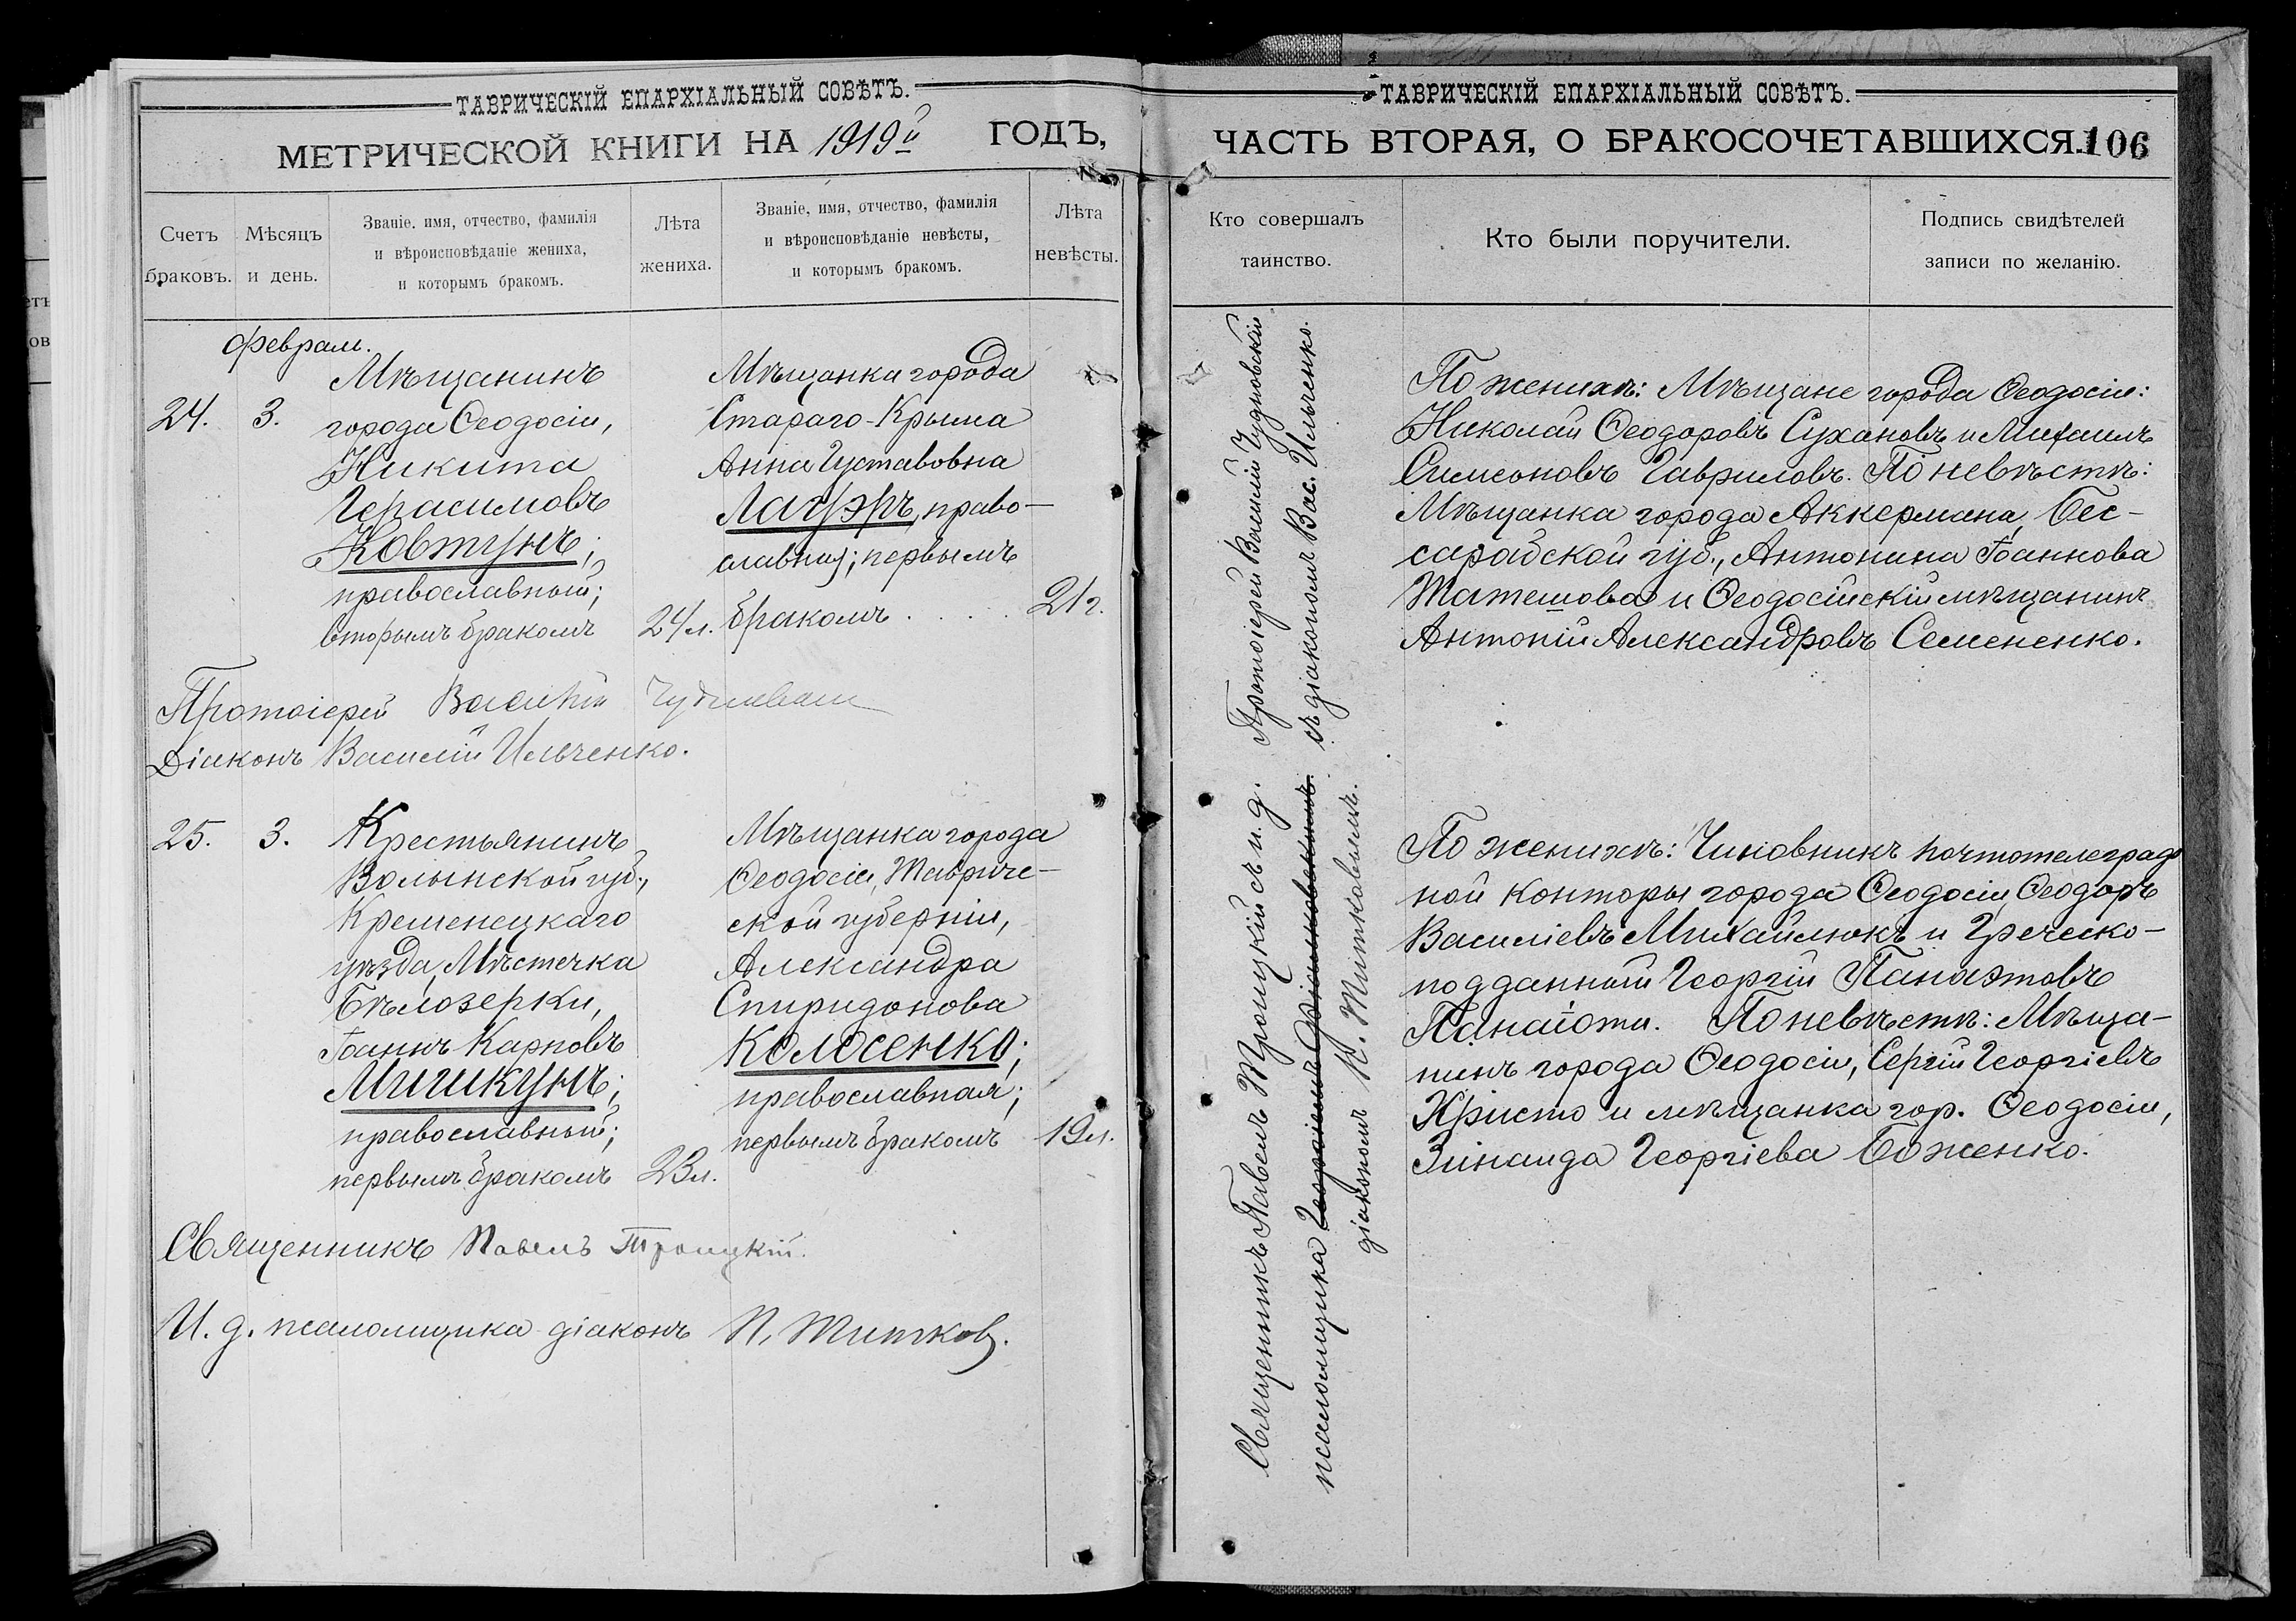 ТАВРИЧЕСКІЙ ЕПАРХІАЛЬНЫЙ СОВѢТЪ.
МЕТРИЧЕСКОЙ КНИГИ НА 1919й ГОДЪ,
Счетъ браковъ.
Мѣсяцъ и день.
Званіе, имя, отчество, фамилія
и вѣроисповѣданіе жениха,
и которымъ бракомъ.
Лѣта
жениха.
Званіе, имя, отчество, фамилія
и вѣроисповѣданіе невѣсты,
и которымъ бракомъ.
Лѣта
невѣсты.
Февраля.
24. 3.
Мѣщанинъ
города Ѳеодосіи,
Никита
Герасимовъ
Ковтунъ;
православный;
вторымъ бракомъ
24 л.
Мѣщанка города
Стараго-Крыма
Анна Густавовна
Лауэръ, право-
славная; первымъ
бракомъ . . . .
21 г.
Протоіерей Василій
Діаконъ Василій Ильченко.
25. 3.
Крестьянинъ
Волынской губ.,
Кременецкаго
уѣзда, Мѣстечка
Бѣлозерки,
Іоаннъ Карповъ
Мишкунъ;
православный;
первымъ бракомъ
23 л.
Мѣщанка города
Ѳеодосіи, Тавриче-
ской губерніи,
Александра
Спиридонова
Колосенко;
православная;
первымъ бракомъ
19 л.
Священникъ Павелъ Троицкій.
И. д. псаломщика діаконъ П. Титковъ.
ТАВРИЧЕСКІЙ ЕПАРХІАЛЬНЫЙ СОВѢТЪ.
ЧАСТЬ ВТОРАЯ, О БРАКОСОЧЕТАВШИХСЯ. 106
Кто совершалъ
таинство.
Кто были поручители.
Подпись свидѣтелей
записи по желанію.
Протоіерей Василій Чудновскій
съ діакономъ Вас. Ильченко.
По женихѣ: Мѣщане города Ѳеодосіи:
Николай Ѳеодоровъ Сухановъ и Михаилъ
Симеоновъ Гавриловъ. По невѣстѣ:
Мѣщанка города Аккермана, Бес-
сарабской губ., Антонина Іоаннова
Татешова и Ѳеодосійскій мѣщанинъ
Антоній Александровъ Семененко.
Священникъ Павелъ Троицкій съ и. д.
псаломщика
діакономъ П. Титковымъ.
По женихѣ: Чиновникъ почтотелеграф
ной конторы города Ѳеодосіи Ѳеодоръ
Василіевъ Михайлюкъ и Греческо-
подданный Георгій Панаэтовъ
Панаіоти. По невѣстѣ: Мѣща-
нинъ города Ѳеодосіи, Сергій Георгіевъ
Христо и мѣщанка гор. Ѳеодосіи,
Зинаида Георгіева Боженко.